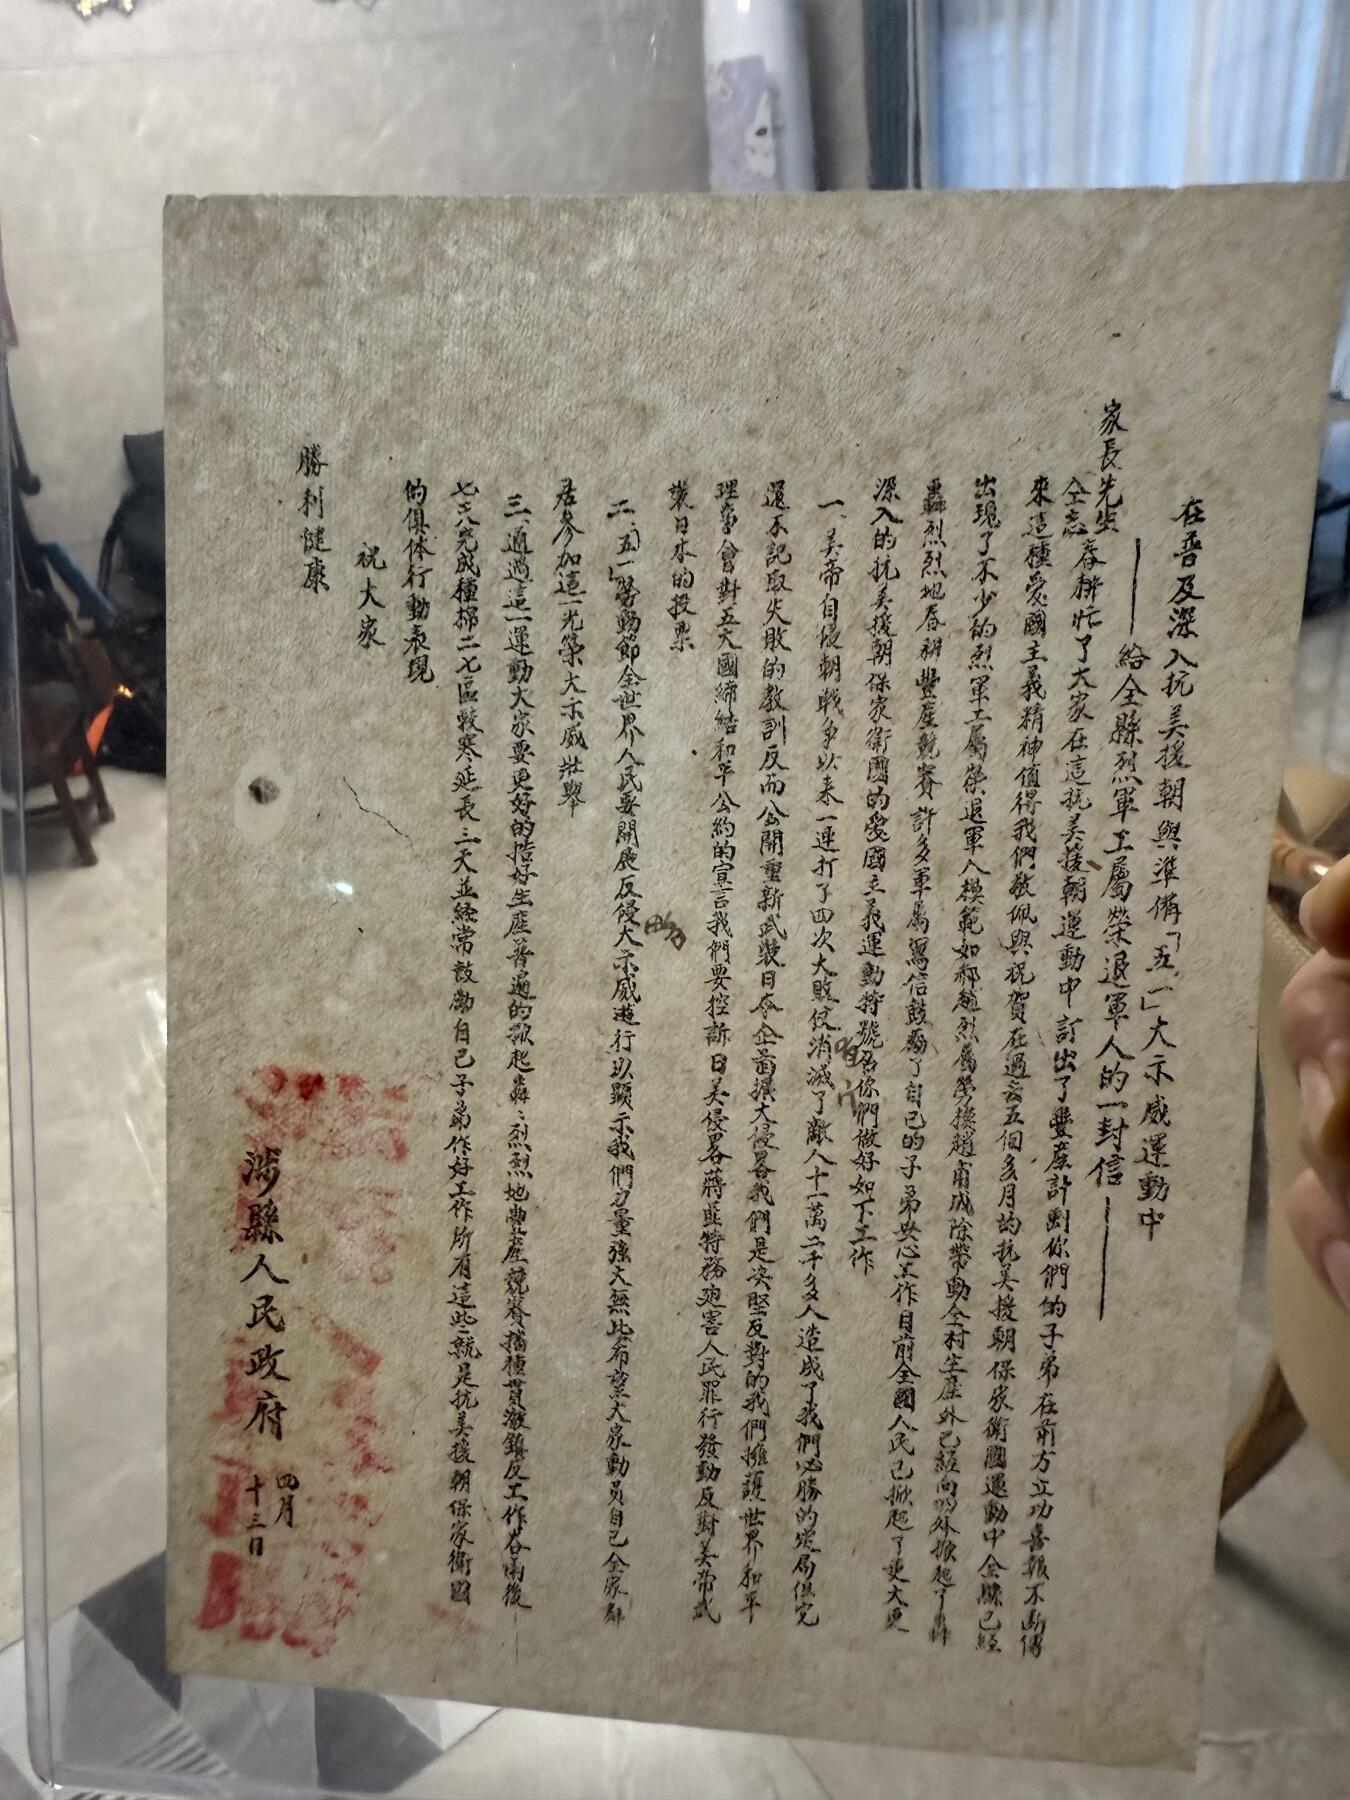 在普及深入抗美援朝與準備「五一」大示威運動中
——給全縣烈軍工屬榮退軍人的一封信——
家長先生
全忘春耕忙了大家在這抗美援朝運動中訂出了豐產計劃你們的子弟在前方立功喜報不断傳
來這種愛國主義精神值得我們敬佩與祝賀在過去五個多月的抗美援朝保家衛國運動中全縣已經
出現了不少的烈軍工屬榮退軍人模範如郝趙烈屬勞模趙甫成除帶動全村生產外已經向內外掀起了轟
轟烈烈地春耕豐產競賽許多軍屬寫信鼓勵了自己的子弟安心工作目前全國人民已掀起了更大更
深入的抗美援朝保家衛國的愛國主義運動特號召你們做好如下工作
一、美帝自侵朝戰爭以来一連打了四次大敗仗消滅了敵人十一萬二千多人造成了我們必勝的定局但它
還不記取失敗的教訓反而公開重新武裝日本企圖擴大侵畧我們是决堅反對的我們擁護世界和平
理事會對五大國締結和平公約的宣言我們要控訴日美侵畧蔣匪特務廹害人民罪行發動反對美帝武
裝日本的投票
二、「五一」勞動節全世界人民要開展反侵大示威遊行以顯示我們力量強大無比希望大家動員自己全家鄰
居參加這一光榮大示威壯舉
三、通過這一運動大家要更好的搞好生產普遍的掀起轟々烈烈地豐產競賽播種貫澈鎮反工作谷雨後
七天完成種棉二七區較寒延長三天並經常鼓勵自己子弟作好工作所有這些就是抗美援朝保家衛國
的俱体行動表現
祝大家
勝利健康
涉縣人民政府
四月
十三日